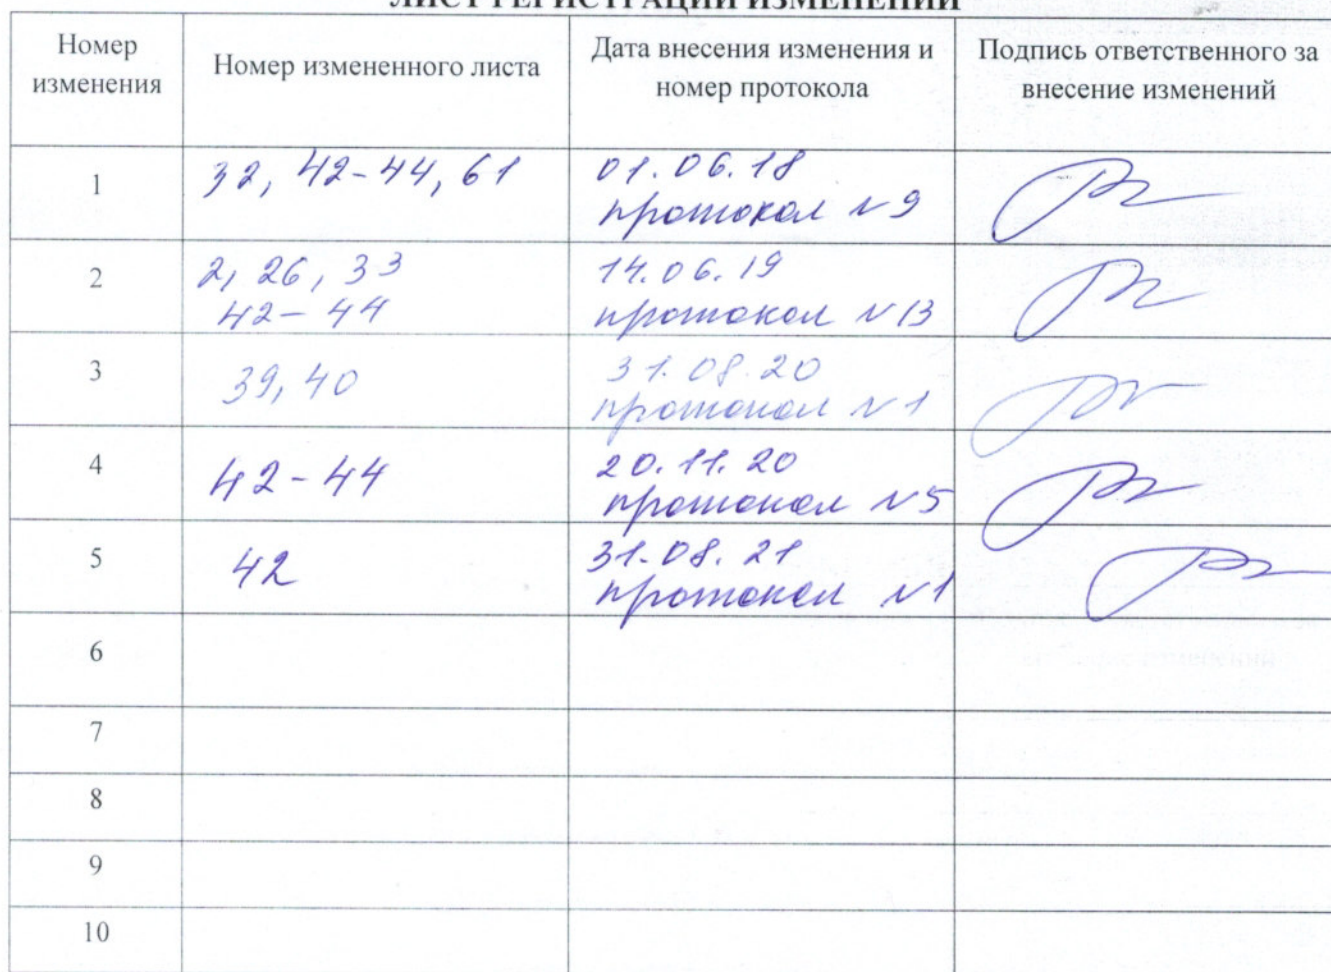 ЛИСТ РЕГИСТРАЦИИ ИЗМЕНЕНИЙ
Номер
изменения
Номер измененного листа
Дата внесения изменения и
номер протокола
Подпись ответственного за
внесение изменений
1
32, 42-44, 61
01.06.18
протокол №9
2
2, 26, 33
42-44
14.06.19
протокол №13
3
39, 40
31.08.20
протокол №1
4
42-44
20.11.20
протокол №5
5
42
31.08.21
протокол №1
6
7
8
9
10